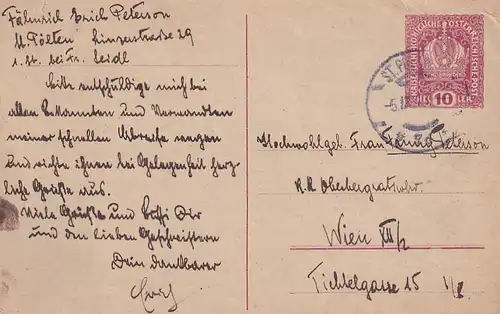 Fähnrich Erich Peterson
St. Pölten Linzerstraße 29
1. St. bei Fr. Seidl
Bitte entschuldige mich bei
allen Bekannten und Verwandten
meiner schnellen Abreise wegen
und richte ihnen bei Gelegenheit herz-
liche Grüße aus.
Viele Grüße und Dir
und den lieben Geschwistern
Dein dankbarer
Erich
KAISERLICHE KÖNIGLICHE ÖSTERREICHISCHE POST
HELLER 10
ST. P
-5.
Hochwohlgel. Frau Peterson
K.K.
Wien XII/2
Tichtelgasse 15